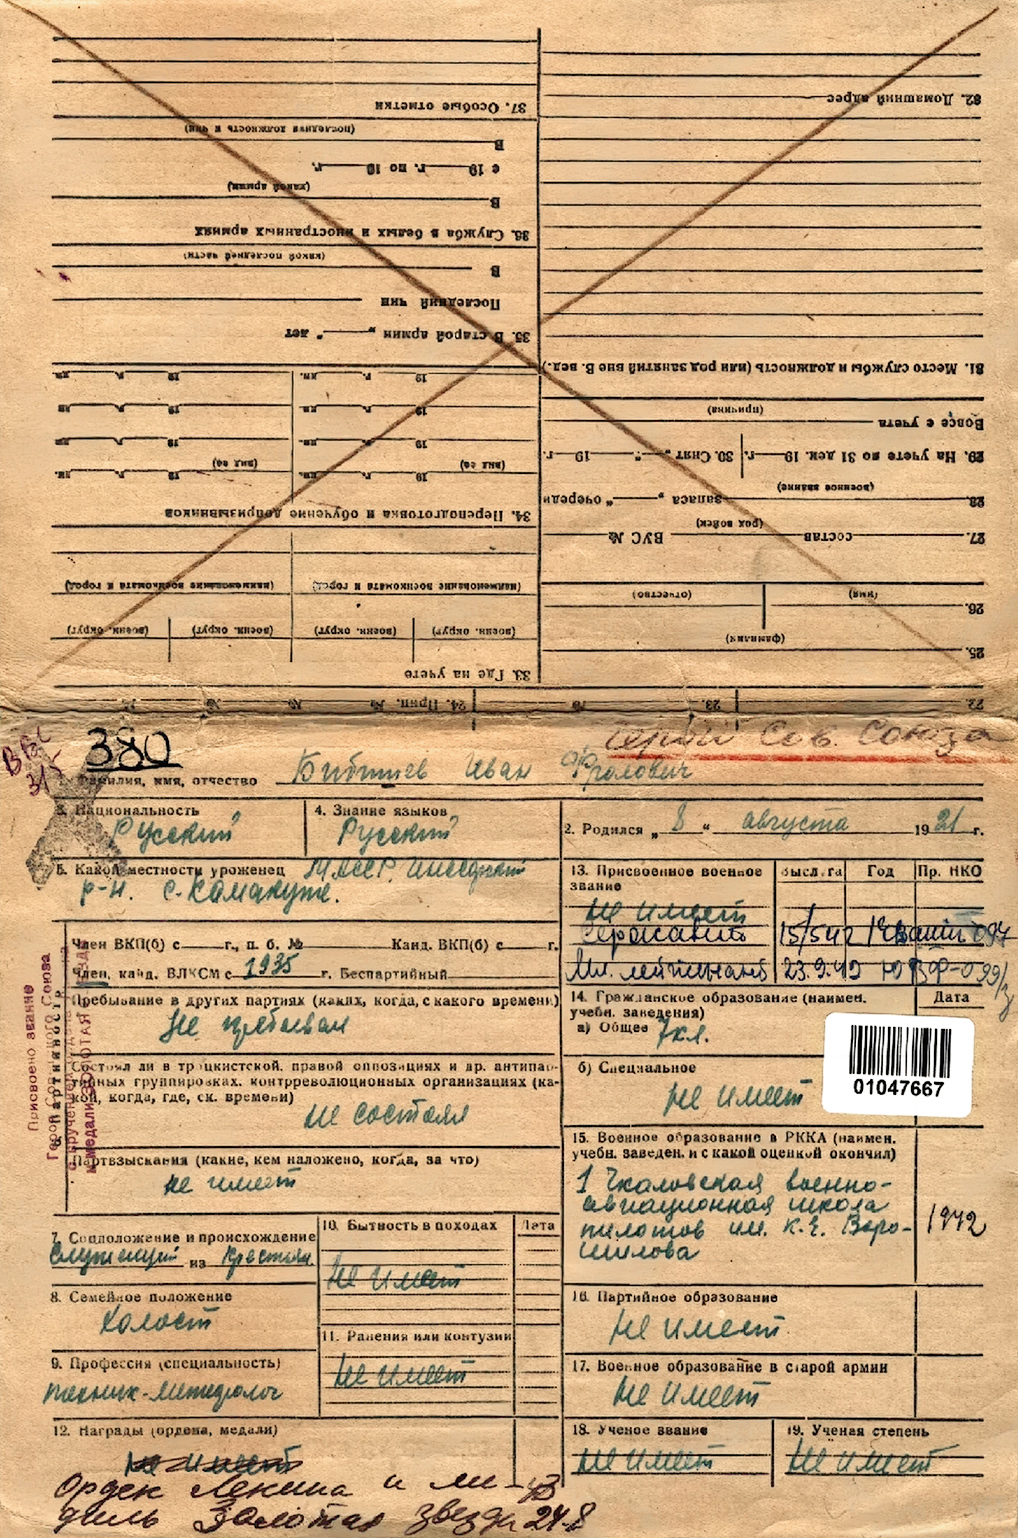 37. Особые отметки
(последняя должность и чин)
В
с 19 г. по 19 г.
(какой армии)
В
36. Служба в белых и иностранных армиях
(какой последней части)
В
Последний чин
35. В старой армии „ " лет
19 г. кв. 19 г. кв.
19 г. кв. 19 г. кв.
19 г. кв. 19 г. кв.
(вид св) (вид св)
19 г. кв. 19 г. кв.
34. Переподготовка и обучение допризывников
(наименование военкомата и город)
(наименование военкомата и город)
(воен. округ) (воен. округ) (воен. округ) (воен. округ)
33. Где на учете
32. Домашний адрес
31. Место службы и должность (или род занятий вне В. вед.)
(причина)
Вовсе с учета
29. На учете по 31 дек. 19 г. 30. Снят „ " 19 г.
(военное звание)
28. запаса „ " очереди
(род войск)
27. состав ВУС №
(имя) (отчество)
26.
(фамилия)
25.
22. № 23. № 24. Прип. №
ВВС
315
380
Герой Сов. Союза
1. Фамилия, имя, отчество Бибишев Иван Фролович
3. Национальность
Русский
4. Знание языков
Русский
2. Родился „ 8 " августа 1921 г.
5. Какой местности уроженец МАССР. Инсарский
р-н. с. Камакуже.
13. Присвоенное военное звание
Высл. га Год Пр. НКО
не имеет
Сержант 15/5 42
Мл. лейтенант 23.9.42 ЮВФ-099/з
Член ВКП(б) с г., п. б. № Канд. ВКП(б) с г.
Член, канд. ВЛКСМ с 1935 г. Беспартийный
6. Партийность
Присвоено звание
Герой Советского Союза
с вручением ордена Ленина
и медали ЗОЛОТАЯ ЗВЕЗДА
Пребывание в других партиях (каких, когда, с какого времени)
Не пребывал
Состоял ли в троцкистской, правой оппозициях и др. антипар-
тийных группировках, контрреволюционных организациях (ка-
кой, когда, где, ск. времени)
не состоял
Партвзыскания (какие, кем наложено, когда, за что)
не имеет
14. Гражданское образование (наимен. учебн. заведения)
Дата
а) Общее 7 кл.
б) Специальное
не имеет
01047667
15. Военное образование в РККА (наимен.
учебн. заведен. и с какой оценкой окончил)
1 Чкаловская военно-
авиационная школа
пилотов им. К.Е. Воро-
шилова
1942
7. Соцположение и происхождение
Служащий из крестьян
10. Бытность в походах Дата
не имеет
8. Семейное положение
Холост
11. Ранения или контузии
не имеет
9. Профессия (специальность)
техник-метеоролог
16. Партийное образование
не имеет
17. Военное образование в старой армии
не имеет
12. Награды (ордена, медали)
не имеет
Орден Ленина и ме-
даль Золотая звезда 24.8
18. Ученое звание
не имеет
19. Ученая степень
не имеет